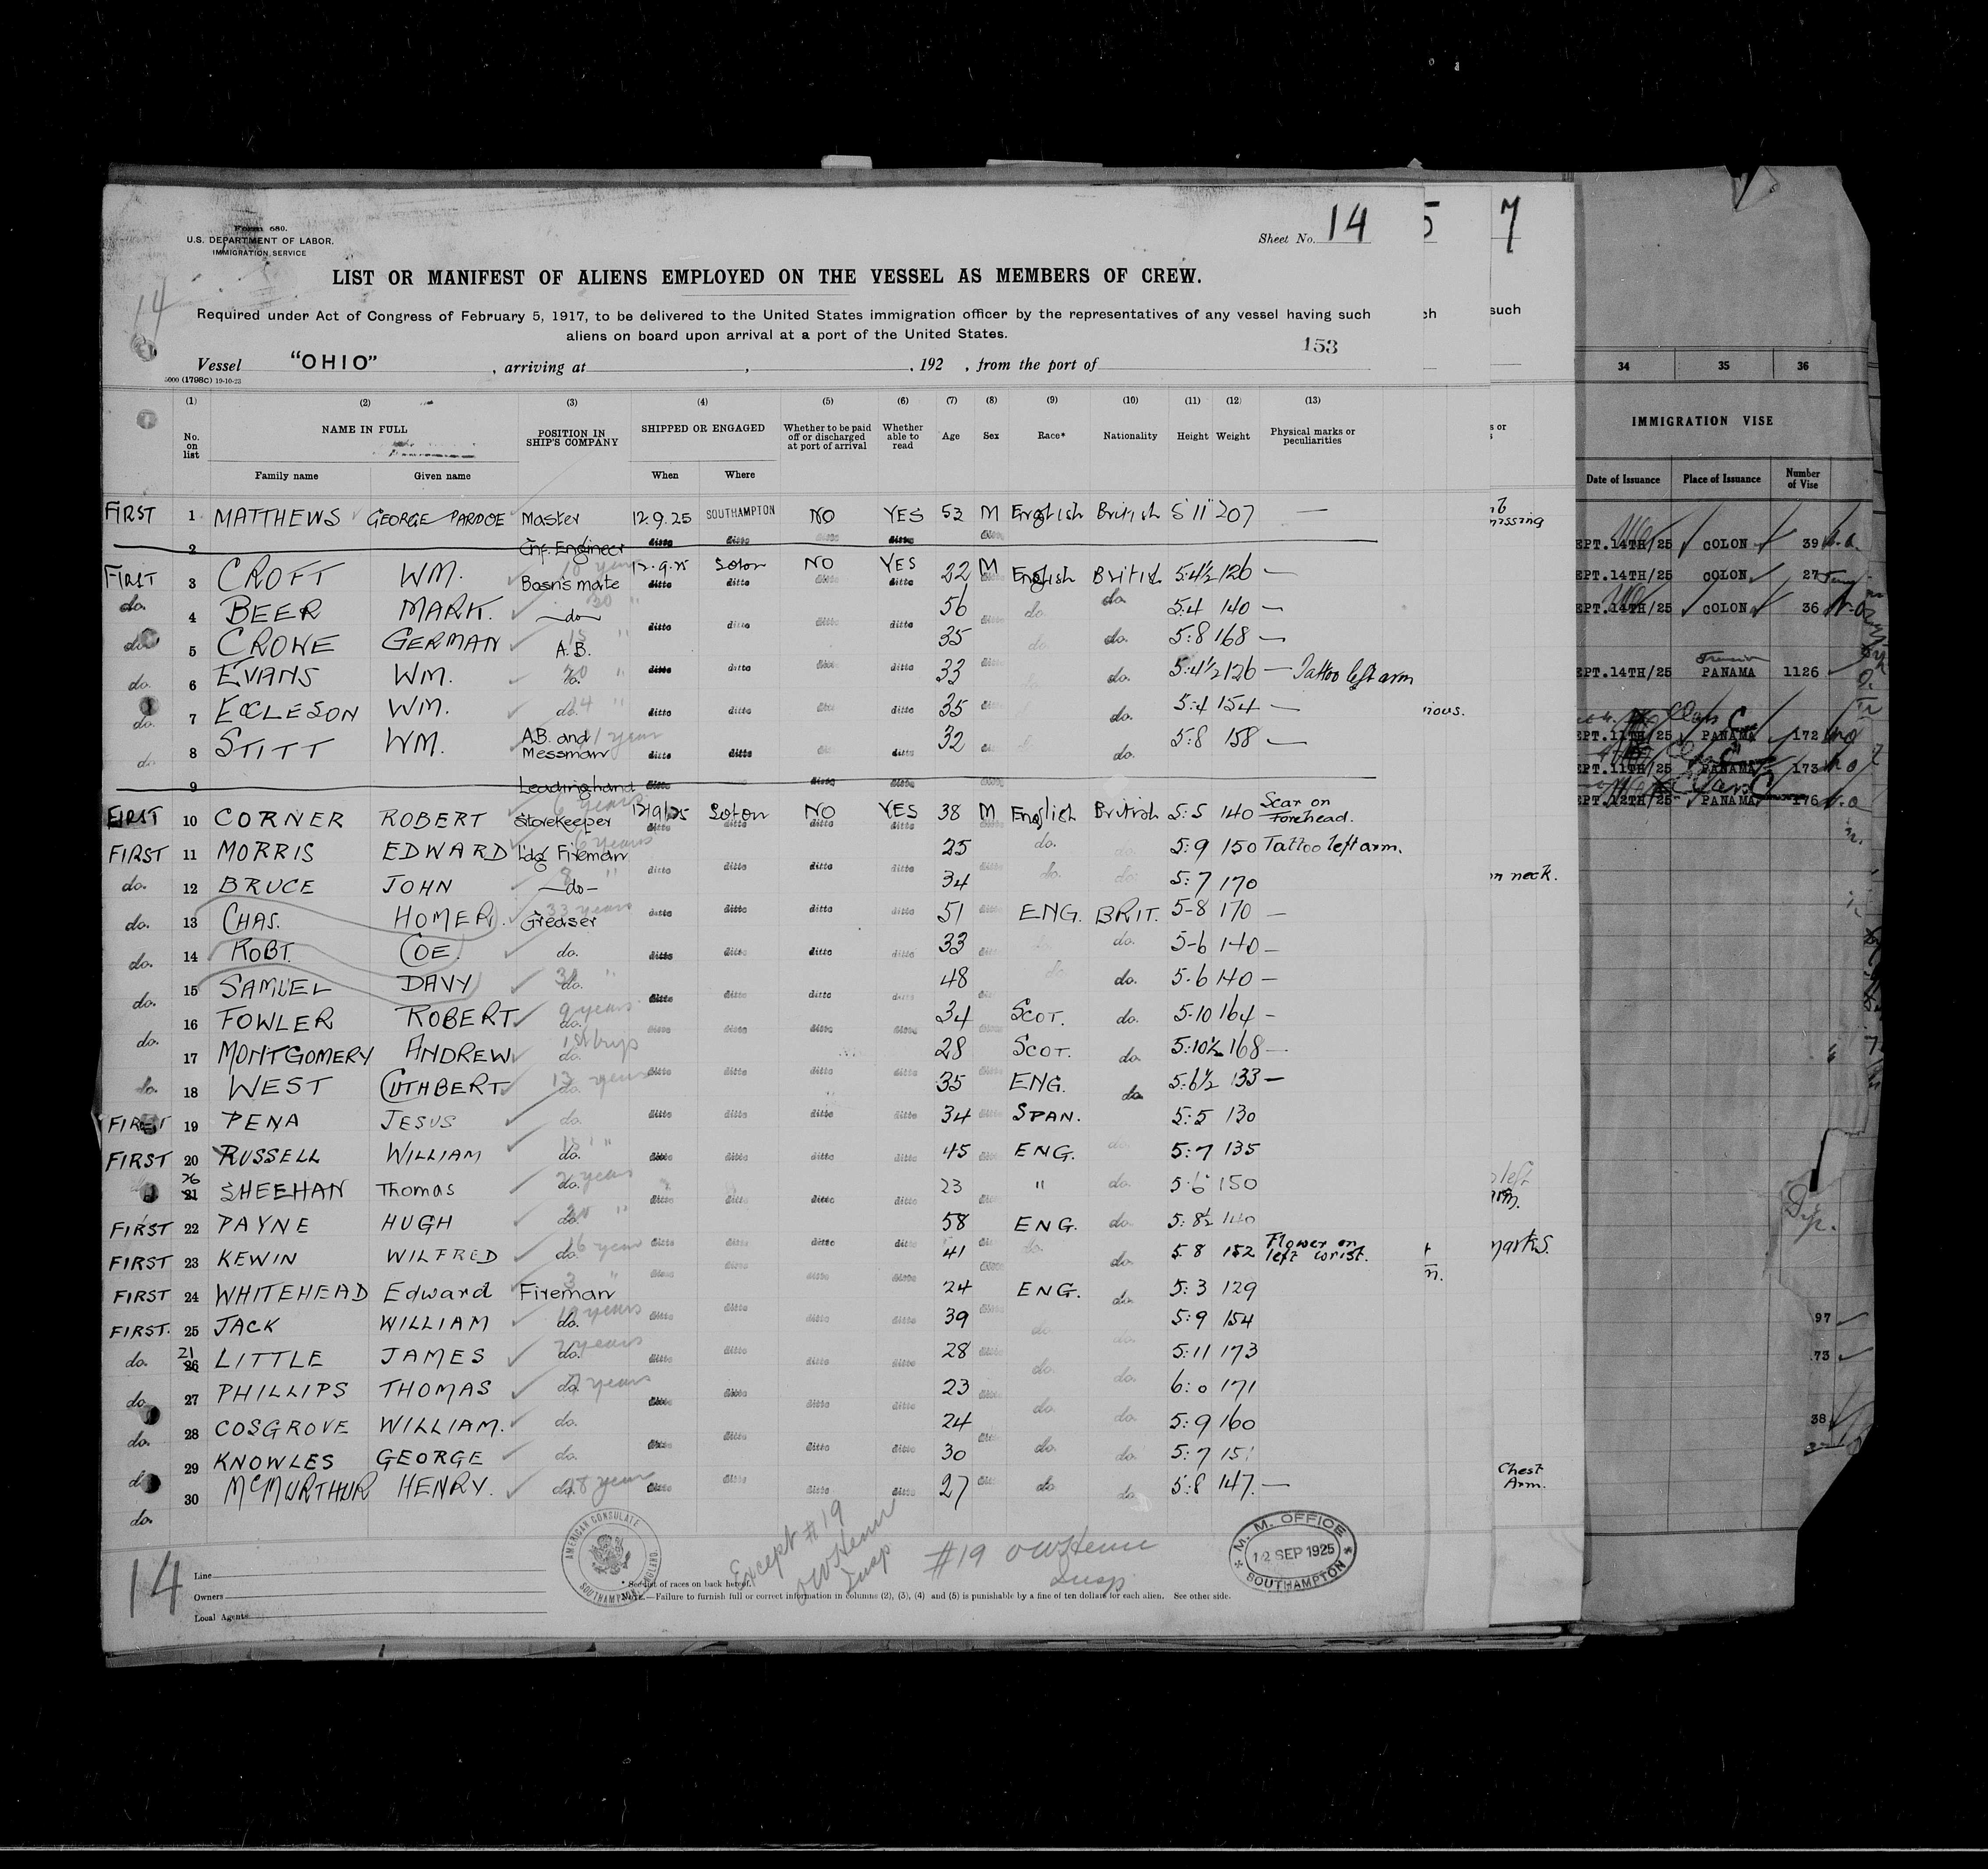 Form 680.
U.S. DEPARTMENT OF LABOR.
IMMIGRATION SERVICE
Sheet No. 14
5
7
LIST OR MANIFEST OF ALIENS EMPLOYED ON THE VESSEL AS MEMBERS OF CREW.
14
Required under Act of Congress of February 5, 1917, to be delivered to the United States immigration officer by the representatives of any vessel having such
aliens on board upon arrival at a port of the United States.
153
Vessel "OHIO", arriving at , , 192 , from the port of
5000 (1798c) 19-10-23
(1) (2) (3) (4) (5) (6) (7) (8) (9) (10) (11) (12) (13)
No. on list NAME IN FULL POSITION IN SHIP'S COMPANY SHIPPED OR ENGAGED Whether to be paid off or discharged at port of arrival Whether able to read Age Sex Race* Nationality Height Weight Physical marks or peculiarities
Family name Given name When Where
FIRST 1 MATTHEWS GEORGE PARDOE Master 12.9.25 SOUTHAMPTON NO YES 53 M English British 5 11 207 —
2 Chf. Engineer ditto ditto ditto ditto
FIRST 3 CROFT WM. Bosn's mate 12.9.25 Soton NO YES 22 M English British 5:4½ 126 —
do. 4 BEER MARK. —do— 30 " ditto ditto ditto ditto 56 do. do. 5:4 140 —
do 5 CROWE GERMAN A.B. 15 " 35 do. do. 5:8 168 —
do. 6 EVANS WM. do. 20 " ditto ditto ditto ditto 33 do. 5:4½ 126 — Tattoo left arm
do. 7 ECCLESON WM. do. 14 " ditto ditto ditto ditto 35 do. 5:4 154 —
do 8 STITT WM. A.B. and Messman 1 year ditto ditto ditto 32 do. 5:8 158 —
9 Leadinghand ditto ditto ditto
FIRST 10 CORNER ROBERT Storekeeper 6 years 12/9/25 Soton NO YES 38 M English British 5:5 140 Scar on Forehead.
FIRST 11 MORRIS EDWARD Ldg Fireman 25 do. do. 5:9 150 Tattoo left arm.
do. 12 BRUCE JOHN —do— 8 " ditto ditto ditto ditto 34 do. do. 5:7 170
do. 13 CHAS. HOMER. Greaser 33 years ditto ditto ditto ditto 51 ENG. BRIT. 5-8 170 —
do. 14 ROBT. COE. do. ditto ditto ditto ditto 33 do. 5-6 140 —
do. 15 SAMUEL DAVY do. ditto ditto ditto ditto 48 do. do. 5.6 140 —
do. 16 FOWLER ROBERT do. 9 years ditto ditto ditto ditto 34 SCOT. do. 5-10 164 —
do. 17 MONTGOMERY ANDREW do. 28 SCOT. do. 5:10½ 168 —
do. 18 WEST CUTHBERT do. 13 years ditto ditto ditto ditto 35 ENG. do. 5:6½ 133 —
FIRST 19 PENA JESUS do. ditto ditto ditto ditto 34 SPAN. 5:5 130
FIRST 20 RUSSELL WILLIAM do. ditto ditto ditto ditto 45 ENG. do. 5:7 135
26 21 SHEEHAN Thomas do. ditto ditto ditto ditto 23 " do. 5·6 150
FIRST 22 PAYNE HUGH do. 58 ENG. do. 5:8½ 140
FIRST 23 KEWIN WILFRED do. ditto ditto ditto ditto 41 do. do. 5 8 152 Flower on left wrist.
FIRST 24 WHITEHEAD Edward Fireman 3 " ditto ditto ditto ditto 24 ENG. do. 5:3 129
FIRST. 25 JACK WILLIAM do. ditto ditto ditto ditto 39 do. do. 5:9 154
do. 21 26 LITTLE JAMES do. years ditto ditto ditto ditto 28 do. do. 5:11 173
do. 27 PHILLIPS THOMAS do. years ditto ditto ditto ditto 23 do. do. 6:0 171
do. 28 COSGROVE WILLIAM. do. 24 do. do. 5:9 160
do 29 KNOWLES GEORGE do. ditto ditto ditto ditto 30 do. do. 5:7
do. 30 McMURTHUR HENRY. do. 8 year ditto ditto ditto ditto 27 do do. 5:8 147. —
14
Line
Owners
Local Agents
AMERICAN CONSULATE
SOUTHAMPTON, ENGLAND
Except #19
OW Henn
Insp
#19 OW Henn
Insp
M. M. OFFICE
12 SEP 1925
SOUTHAMPTON
* See list of races on back hereof.
NOTE.—Failure to furnish full or correct information in columns (2), (3), (4) and (5) is punishable by a fine of ten dollars for each alien. See other side.
ch
such
s or
missing
ious.
on neck.
left
arm.
marks.
Chest
Arm.
34 35 36
IMMIGRATION VISE
Date of Issuance Place of Issuance Number of Vise
EPT.14TH/25 COLON 39
EPT.14TH/25 COLON 27
EPT.14TH/25 COLON 36
EPT.14TH/25 PANAMA 1126
EPT.11TH/25 PANAMA 172
EPT.11TH/25 PANAMA 173
EPT.12TH/25 PANAMA 176
97
73
38